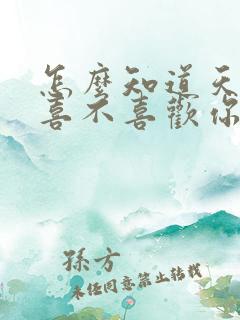 怎麼知道天
喜不喜歡你
孫方
未經同意禁止轉載